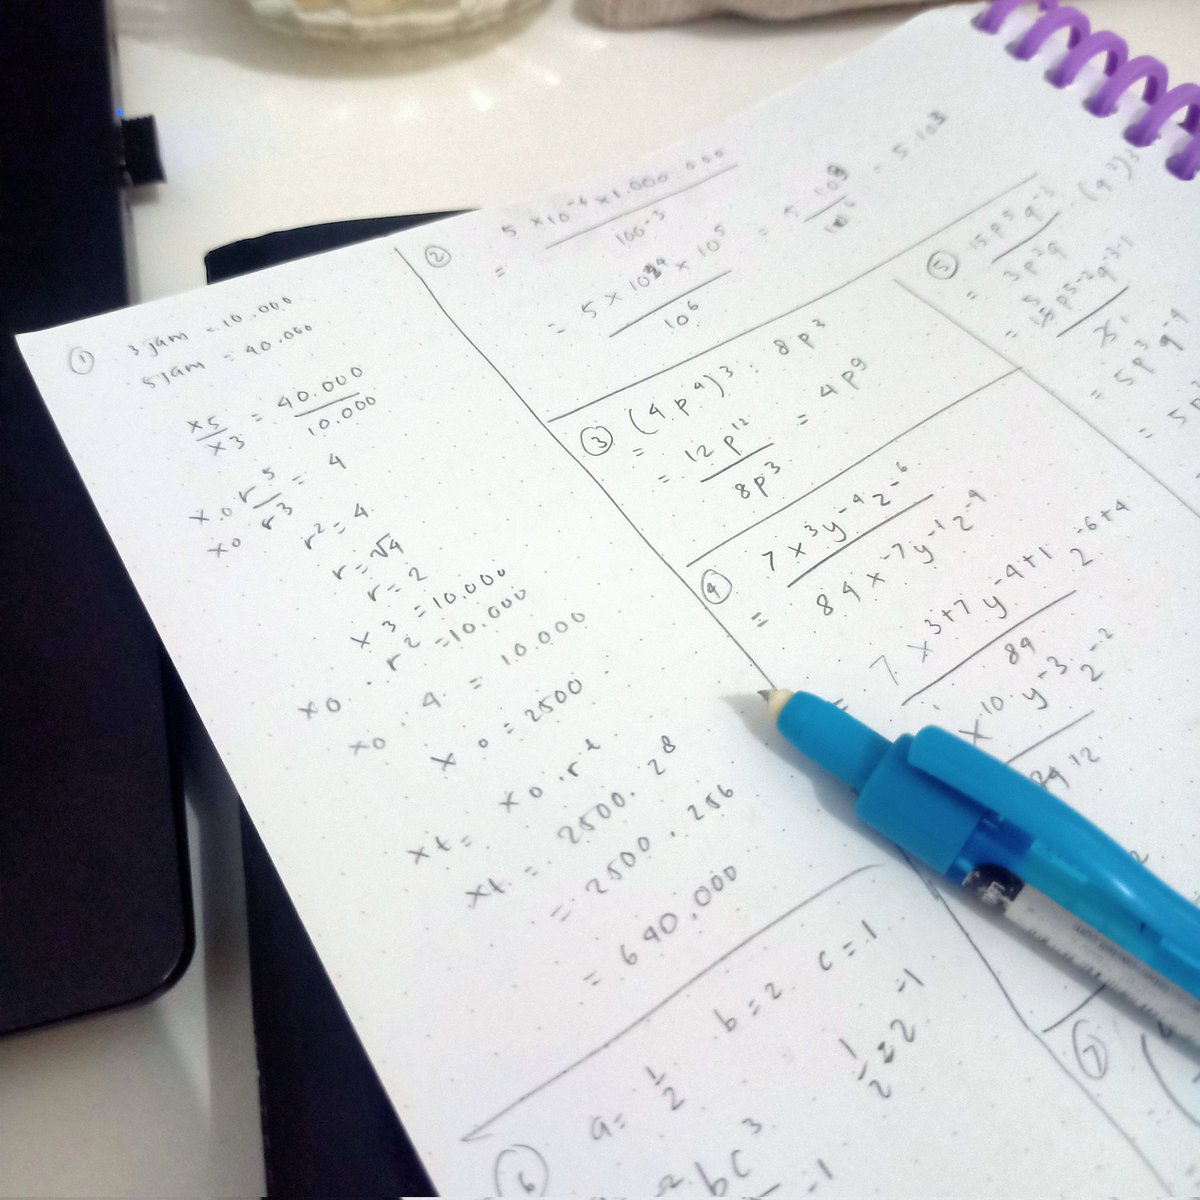 ① 3 jam = 10.000
5 jam = 40.000
x5/x3 = 40.000/10.000
x0 r^5/x0 r^3 = 4
r^2 = 4
r = √4
r = 2
x3 = 10.000
x0 . r^2 = 10.000
x0 . 4 = 10.000
x0 = 2500
xt = x0 . r^t
xt = 2500 . 2^8
= 2500 . 256
= 640.000
② = 5 × 10^-6 × 1.000.000 / 100^-3
= 10^6
③ = (4p^4)^3 : 8p^3
= 12p^12/8p^3 = 4p^9
④ = 7x^3y^-4z^-6/84x^-7y^-1z^-4
= 7x^3+7 y^-4+1 z^-6+4/84
x^10 . y^-3 . z^-2
12
⑤ 15p^5q^-3/3p^2q . (q^3)^3
= 5p^3q^-4
= 5p
⑥ a = 1/2 b = 2 c = 1
1/2 = 2^-1
bc^3
⑦ (